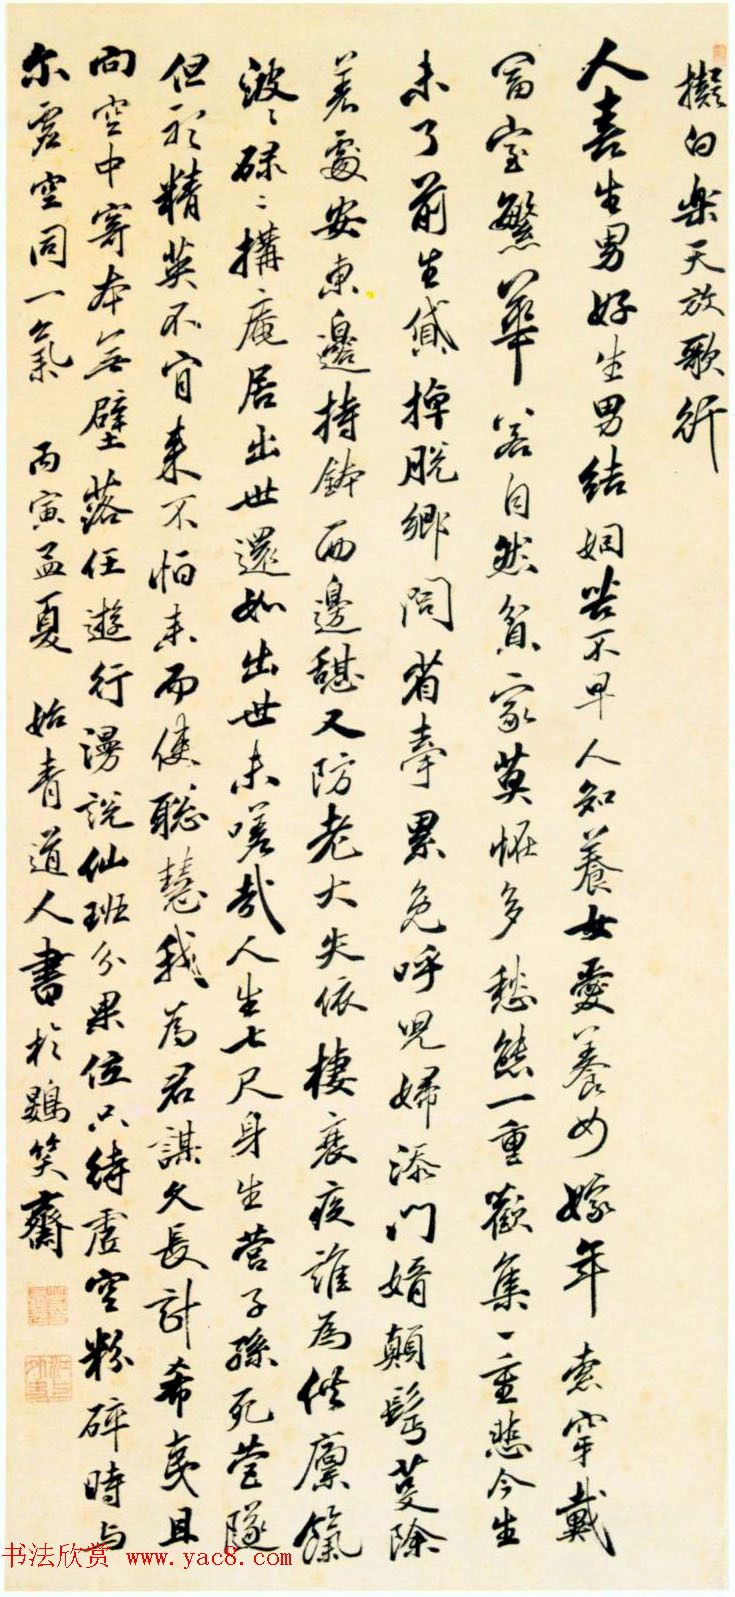 擬白樂天放歌行
人喜生男好生男結姻苦不早人知養女愛養女嫁年索穿戴
富室繁華若自然貧家莫惟多愁態一重歡集一重悲今生
未了前生貸掉脫鄉問省牽累免呼兒婦添門婿顛髩蔓除
若處安東邊持鉢西邊甚又防老大失依棲衰疫誰為供廩餼
波波碌碌構庵居出世還如出世未嗟哉人生七尺身生營子孫死營隧
但求精英不肯來不怕未而使聰慧我為君謀久長計希夷且
向空中寄本無壁落任遊行漫說仙班分果位只待虛空粉碎時与
尔虛空同一氣 丙寅孟夏 始青道人書於鷃笑齋
书法欣赏 www.yac8.com